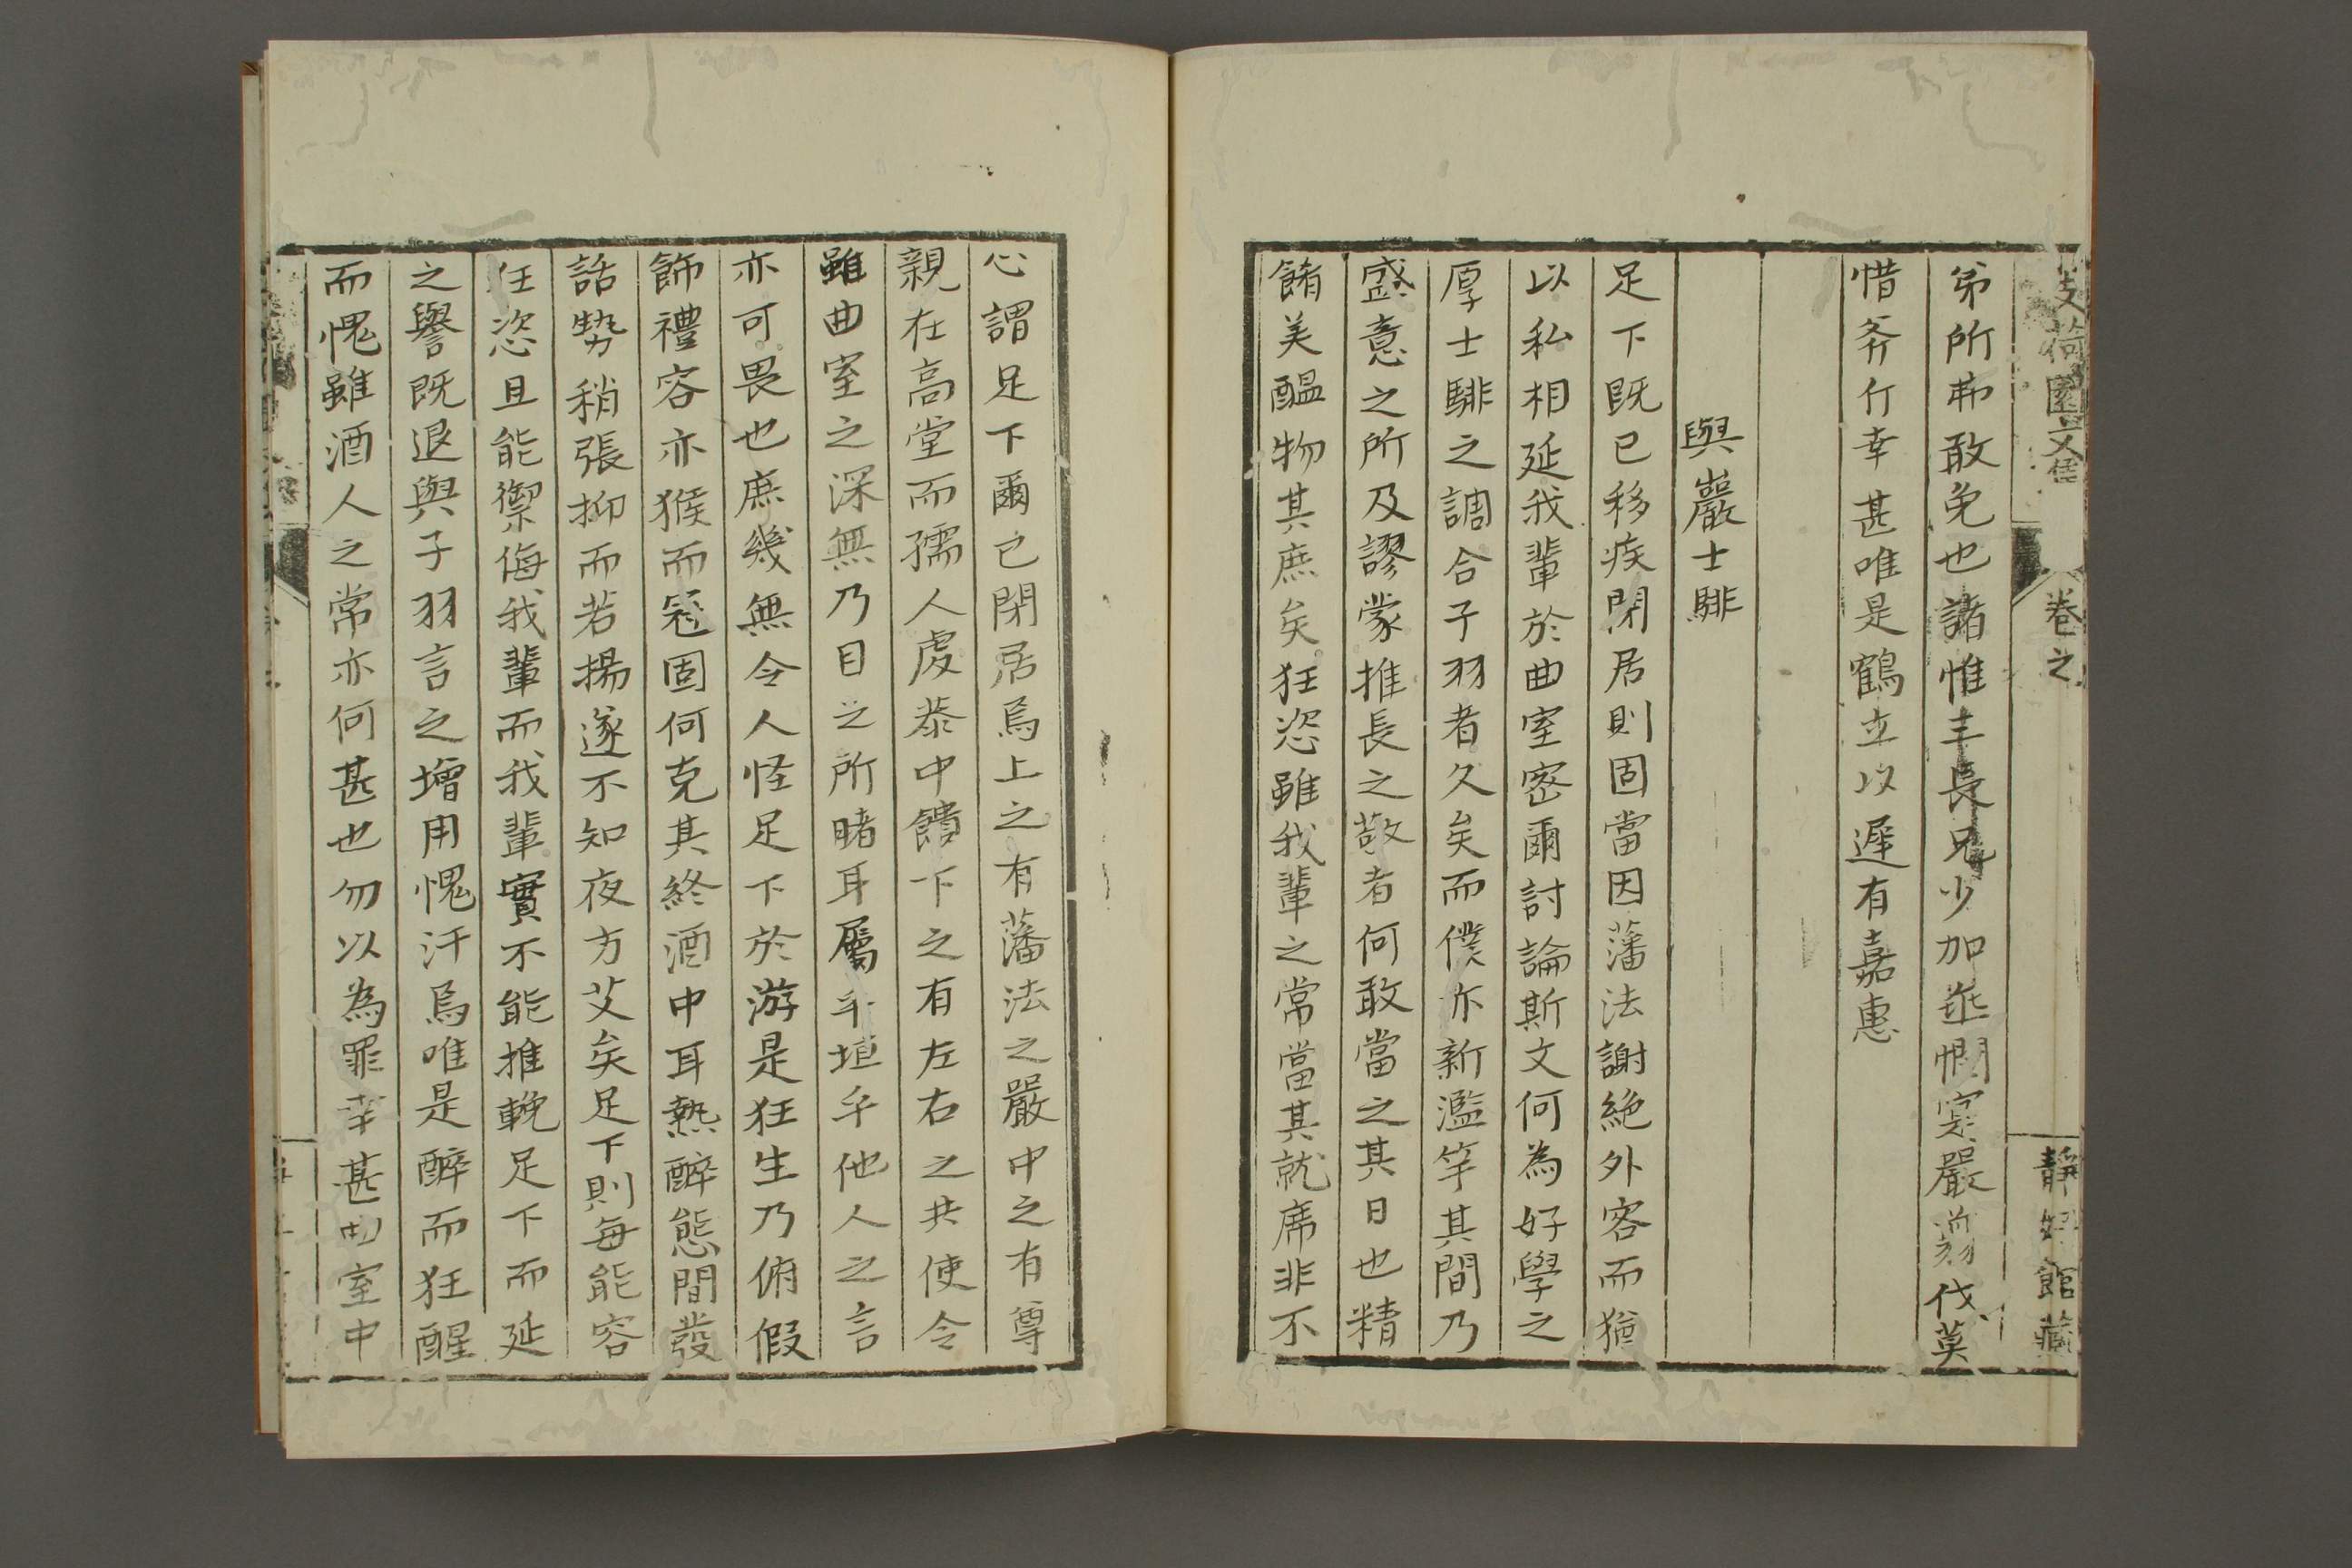 芰荷園文集
卷之
靜好館藏
弟所弗敢免也諸惟丰長兄少加垂憫寔嚴剪伐莫
惜斧斤幸甚唯是鶴立以遲有嘉惠
與巖士騑
足下既已移疾閉居則固當因藩法謝絕外客而猶
以私相延我輩於曲室密爾討論斯文何為好學之
厚士騑之調合子羽者久矣而僕亦新濫竽其間乃
盛意之所及謬蒙推長之敬者何敢當之其日也精
餚美醞物其庶矣狂恣雖我輩之常當其就席非不
心謂足下爾已閉居焉上之有藩法之嚴中之有尊
親在高堂而孺人虔恭中饋下之有左右之共使令
雖曲室之深無乃目之所睹耳屬乎垣乎他人之言
亦可畏也庶幾無令人怪足下於游是狂生乃俯假
飾禮容亦猴而冠固何克其終酒中耳熱醉態間發
話勢稍張抑而若揚遂不知夜方艾矣足下則每能容
狂恣且能禦侮我輩而我輩實不能推輓足下而延
之譽既退與子羽言之增用愧汗焉唯是醉而狂醒
而愧雖酒人之常亦何甚也勿以為罪幸甚曲室中